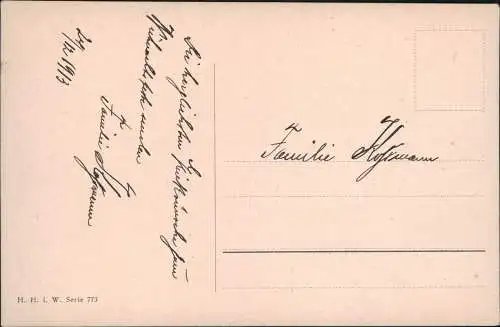 24/12 1913
Die herzlichsten Glückwünsche zum
Weihnachtsfeste sendet
Familie Hofmann
Familie Hoffmann
H. H. i. W. Serie 773